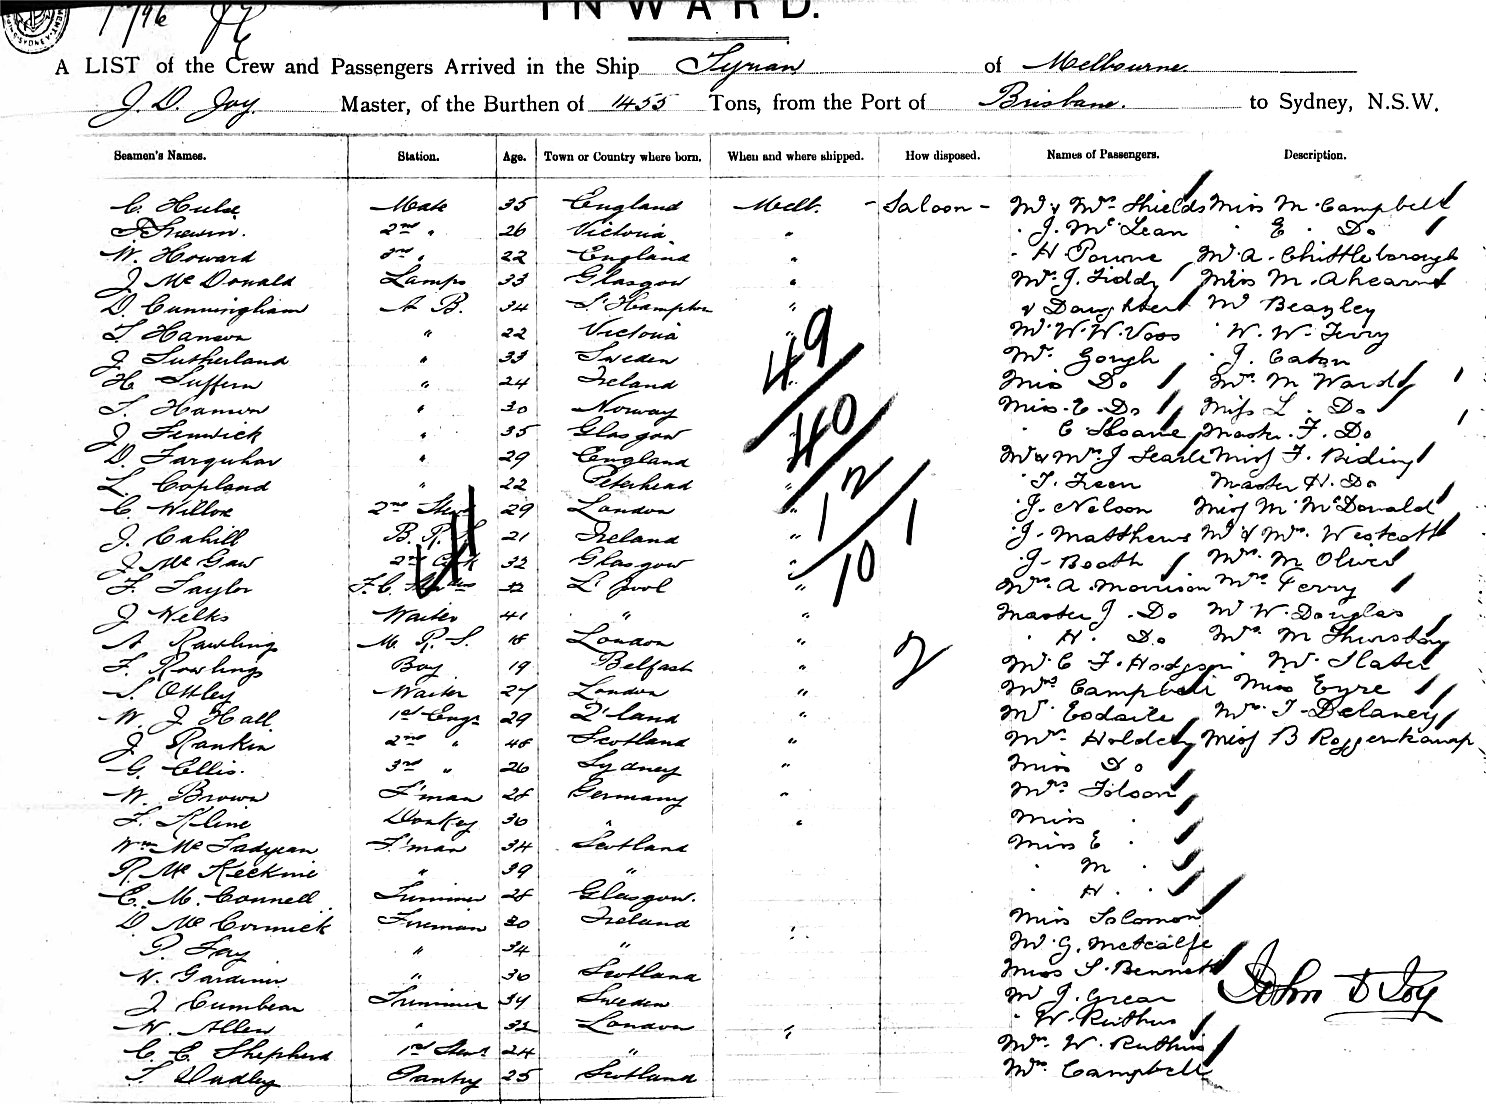 1796
INWARD.
A LIST of the Crew and Passengers Arrived in the Ship Syrian of Melbourne.
J. D. Joy. Master, of the Burthen of 1455 Tons, from the Port of Brisbane. to Sydney, N.S.W.
Seamen's Names. Station. Age. Town or Country where born. When and where shipped. How disposed. Names of Passengers. Description.
C. Hulse Mate 35 England Melb. - Saloon - Mr & Mrs Shields Miss M. Campbell
2nd " 26 Victoria " J. McLean " E. Do
W. Howard 3rd " 22 England " H Mr A. Chittleborough
J McDonald Lamps 33 Glasgow " Mrs J. Fiddy Miss M. Ahearn
D. Cunningham A B. 34 S'Hampton " & Daughter Mr Beazley
T. Hanson " 22 Victoria " Mr W. W. Voss " W. W. Terry
J. Sutherland " 33 Sweden Mrs Gough " J. Caton
H Suffern " 24 Ireland Miss Do Mrs M Ward
T. Hanson " 30 Norway Miss E. Do Miss L. Do
J. Fenwick " 35 Glasgow " E Sloane Master F. Do
D. Farquhar " 29 England Mr & Mrs J Searle Miss F. Riding
L. Copland " 22 Peterhead " " T. Master H. Do
C. Willox 2nd Stewd 29 London " " J. Nelson Miss M McDonald
J. Cahill B. R. S. 21 Ireland " " J. Matthews Mr & Mrs Westcott
J. McGaw 2nd Cook 32 Glasgow " " J. Booth Mrs M Oliver
F. Taylor F. C. L'pool " Mrs A. Morrison Mrs Perry
J Welks Waiter 41 " " Master J. Do Mr W. Douglas
A Rawlings M. R. S. 18 London " " H. Do Mrs M Thursby
F. Rowlings Boy 19 Belfast " Mr C F. Hodgson Mr Slater
S. Ottley Waiter 27 London " Mrs Campbell Miss Eyre
W. J Hall 1st Engr 29 Q'land " Mr Esdaile Mrs T. Delaney
J Rankin 2nd " 48 Scotland " Mrs Holdey Miss B Roggenkamp
G. Ellis. 3rd " 26 Sydney " Miss Do
W. Brown F'man 28 Germany " Mrs Folson
F. Kline Donkey 30 " " Miss "
Wm McFadyean F'man 34 Scotland Miss E "
R. McKechnie " 39 " " M "
C. M. Connell Trimmer 28 Glasgow. " H "
D McCormick Fireman 30 Ireland " Miss Solomon
P. Fay " 34 " Mr G. Metcalfe
W. Gardiner " 30 Scotland Miss S. Bennett
J Cumbear Trimmer 34 Sweden Mr J. Grear
W. Allen " London " " W. Ruthins
C. E. Shepherd 1st Stewd 24 " Mrs W. Ruthins
T. Dudley Pantry 25 Scotland Mrs Campbell
49
40
12
1
10
2
John D Joy